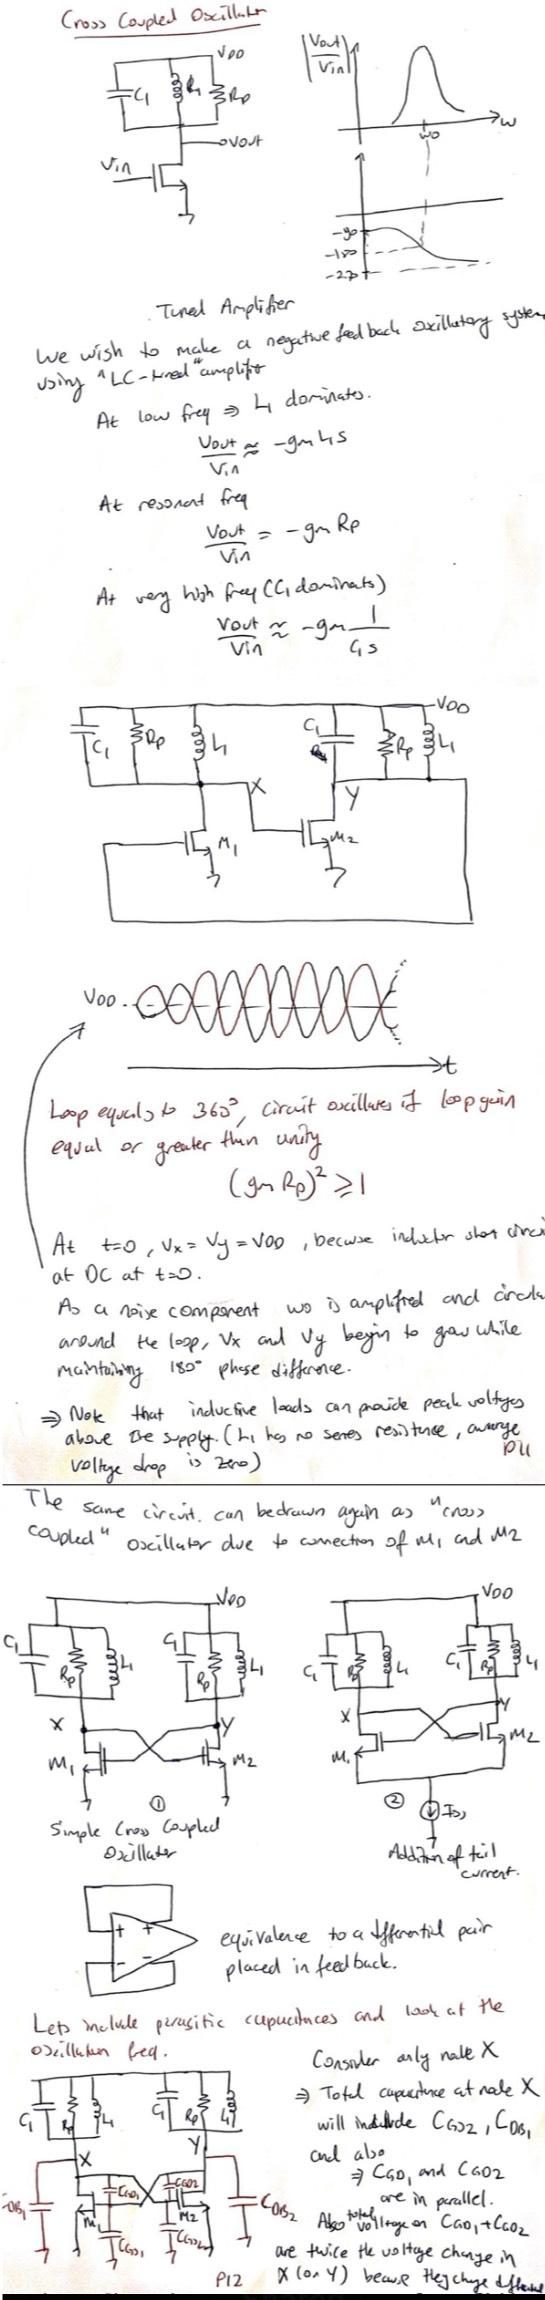 Cross Coupled Oscillator
VDD
C1
Rp
Vout
Vin
|Vout/Vin|
w
w0
-90
-180
-270
Tuned Amplifier
We wish to make a negative feedback oscillatory system
using "LC-tuned" amplifier
At low freq ⇒ L1 dominates.
Vout/Vin ≈ -gm L1 s
At resonant freq
Vout/Vin = -gm Rp
At very high freq (C1 dominates)
Vout/Vin ≈ -gm 1/(C1 s)
VDD
C1 Rp L1
C1 Rp L1
X Y
M1 M2
VDD
t
Loop equals to 360°, circuit oscillates if loop gain
equal or greater than unity
(gm Rp)² ≥ 1
At t=0, Vx = Vy = VDD, because inductor short
at DC at t=0.
As a noise component w0 is amplified and
around the loop, Vx and Vy begin to grow while
maintaining 180° phase difference.
⇒ Note that inductive loads can provide peak voltages
above the supply. (L1 has no series resistance, average
voltage drop is zero)
P11
The same circuit. can be drawn again as "cross
coupled" oscillator due to connection of M1 and M2
VDD VDD
C1 Rp L1 C1 Rp L1 C1 Rp L1 C1 Rp L1
X Y X Y
M1 M2 M1 M2
① ② ISS
Simple Cross Coupled
Oscillator
Addition of tail
current.
+ +
- -
equivalence to a differential pair
placed in feedback.
Lets include parasitic capacitances and look at the
oscillation freq.
C1 Rp L1 C1 Rp L1
X Y
CDB1 CGD1 CGD2 CDB2
M1 M2
CGS1 CGS2
Consider only node X
⇒ Total capacitance at node X
will include CGS2, CDB1
and also
⇒ CGD1 and CGD2
are in parallel.
Also total voltage on CGD1 + CGD2
are twice the voltage change in
X (or Y) because they change
P12